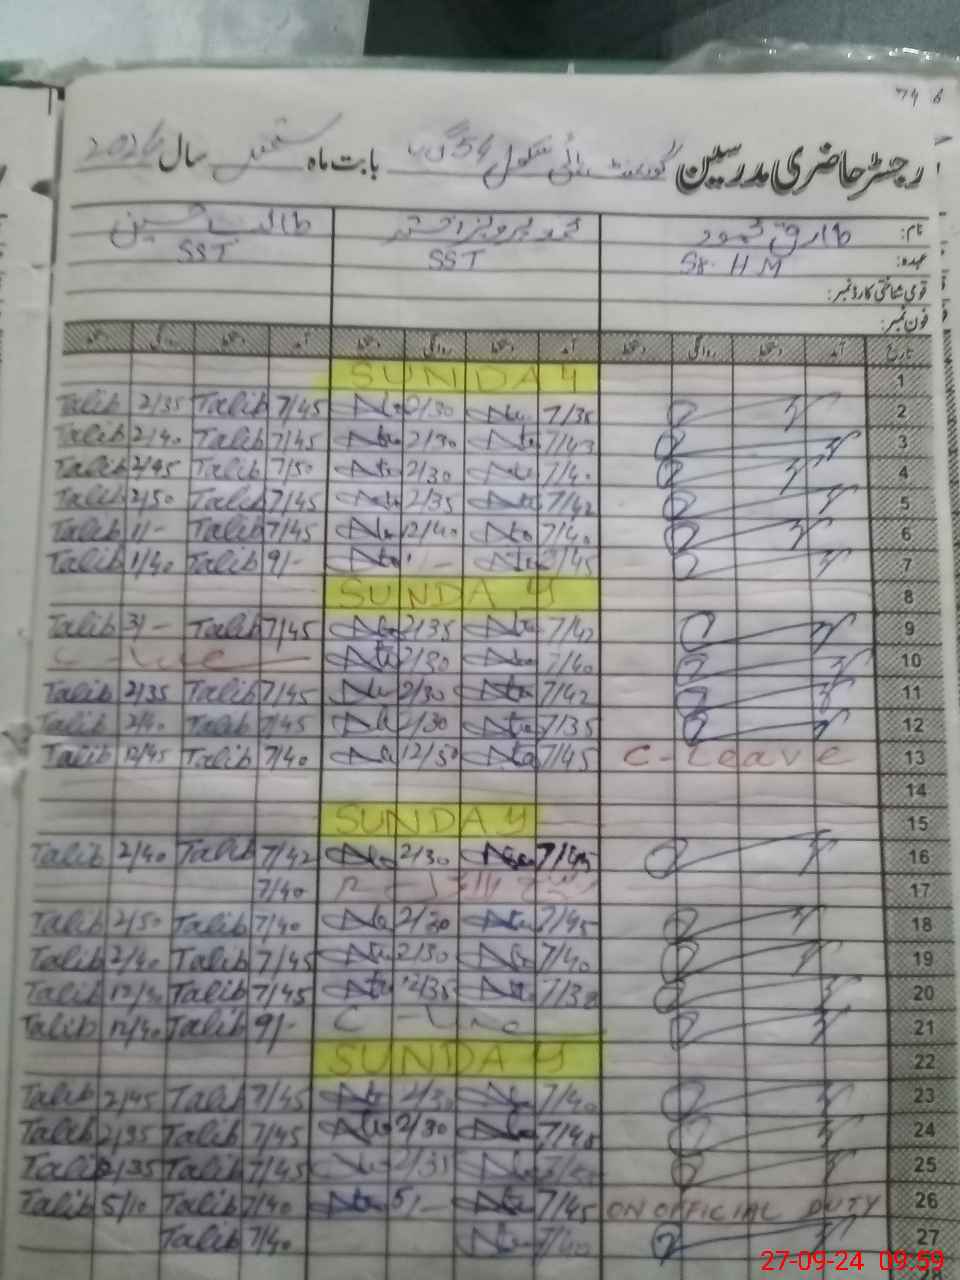 رجسٹر حاضری مدرسین گورنمنٹ ہائی سکول 54 گ ب بابت ماہ ستمبر سال 2024
نام: طارق محمود محمد پرویز اختر طالب حسین
عہدہ: Sr. HM SST SST
قومی شناختی کارڈ نمبر:
فون نمبر:
تاریخ آمد دستخط روانگی دستخط آمد دستخط روانگی دستخط آمد دستخط روانگی دستخط
SUNDAY 1
Talib 2/35 Talib 7/45 2/30 7/35 2
Talib 2/40 Talib 7/45 2/30 7/43 3
Talib 2/45 Talib 7/50 2/30 7/40 4
Talib 2/50 Talib 7/45 2/35 7/42 5
Talib 1/- Talib 7/45 12/40 7/40 6
Talib 1/40 Talib 9/- 7/45 7
SUNDAY 8
Talib 3/- Talib 7/45 2/35 7/42 9
2/30 7/40 10
Talib 2/35 Talib 7/45 2/30 7/42 11
Talib 2/40 Talib 7/45 2/30 7/35 12
Talib 12/45 Talib 7/40 12/50 7/45 C-Leave 13
14
SUNDAY 15
Talib 2/40 Talib 7/42 2/30 7/45 16
7/40 17
Talib 2/50 Talib 7/40 2/30 7/45 18
Talib 2/40 Talib 7/45 2/30 7/40 19
Talib 12/40 Talib 7/45 12/35 7/38 20
Talib 12/40 Talib 9/- 21
SUNDAY 22
Talib 2/45 Talib 7/45 2/30 7/40 23
Talib 2/35 Talib 7/45 2/30 7/45 24
Talib 2/35 Talib 7/45 2/35 25
Talib 5/10 Talib 7/40 5/- 7/45 ON OFFICIAL DUTY 26
Talib 7/40 7/40 27
27-09-24 09:59